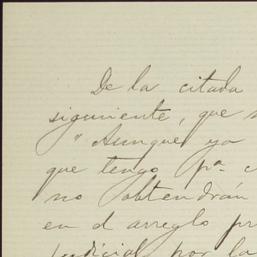 De la citada
siguiente, que
"Aunque yo
que tengo pª.
no obtendrán
en el arreglo
judicial por la